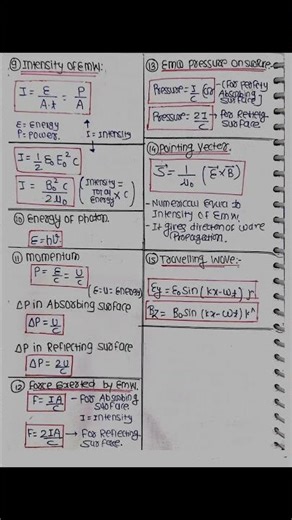 ⑨ Intensity of EMW:
I = E/A·t = P/A
E = Energy
P = Power.
I = Intensity
I = 1/2 ε₀E₀²c
I = B₀²c/2μ₀ (Intensity = Total Energy × c)
⑩ Energy of Photon
E = hν
⑪ Momentum
P = E/c = U/c
(E=U= Energy)
ΔP in Absorbing surface
ΔP = U/c
ΔP in Reflecting surface
ΔP = 2U/c
⑫ Force Exerted by EMW.
F = IA/c - For Absorbing surface
I = Intensity
F = 2IA/c → For Reflecting surface.
⑬ EMW Pressure on surface-
Pressure = I/c
Absorbing
surface]
Pressure = 2I/c → For Reflecting
surface
⑭ Pointing Vector.
S→ = 1/μ₀ (E→×B→)
- Numerical Equal to
Intensity of EMW.
- It gives direction of wave
Propagation.
⑮ Travelling wave:-
Ey = E₀sin(kx-ωt) j^
Bz = B₀sin(kx-ωt) k^